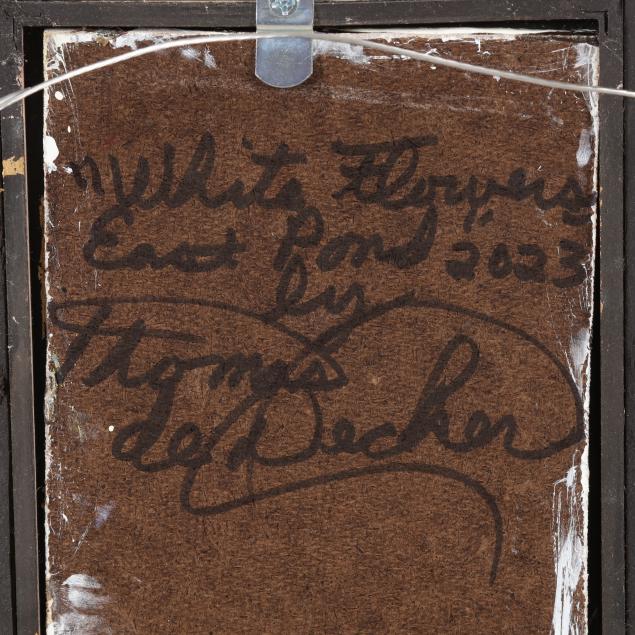 "White Flowers"
East Pond 2023
by
Thomas
deDecker